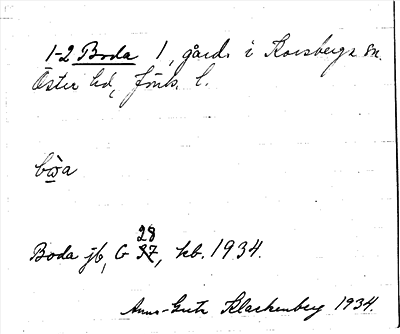 1-2 Boda 1, gård. i Korsberga sn.
Öster hd, Jönk. l.
bὼa
28
Boda jb, G 37, kb. 1934.
Anna-Greta Klackenberg 1934.